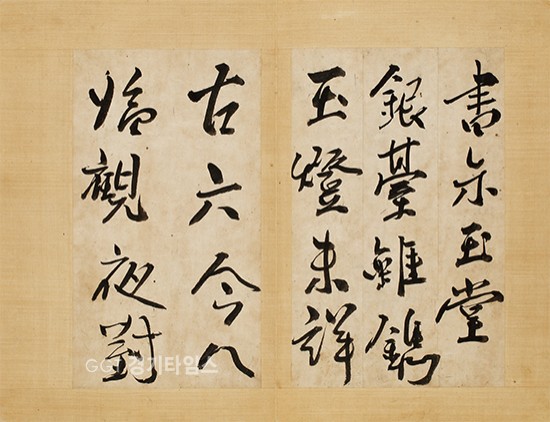 書示玉堂
銀臺雖鐫
玉燈未詳
古六今八
觀夜對
경기타임스